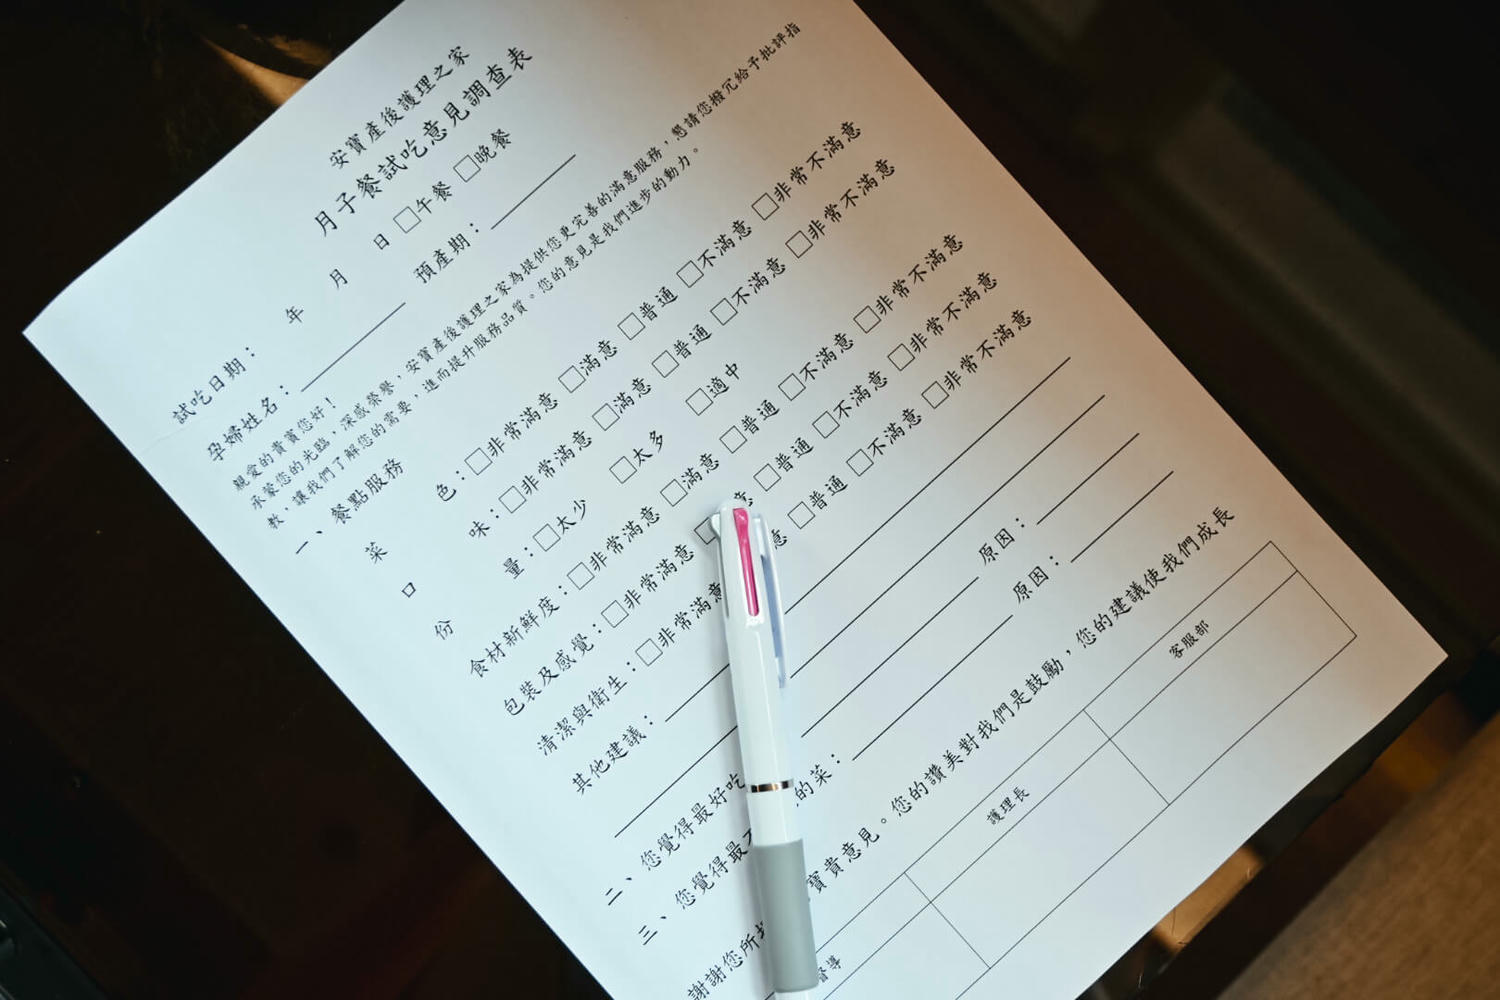 安寶產後護理之家
月子餐試吃意見調查表
試吃日期： 年 月 日 □午餐 □晚餐
孕婦姓名： 預產期：
親愛的貴賓您好！
承蒙您的光臨，深感榮譽，安寶產後護理之家為提供您更完善的滿意服務，懇請您撥冗給予批評指
教，讓我們了解您的需要，進而提升服務品質。您的意見是我們進步的動力。
一、餐點服務
菜 色：□非常滿意 □滿意 □普通 □不滿意 □非常不滿意
口 味：□非常滿意 □滿意 □普通 □不滿意 □非常不滿意
份 量：□太少 □太多 □適中
食材新鮮度：□非常滿意 □滿意 □普通 □不滿意 □非常不滿意
包裝及感覺：□非常滿意 □ 意 □普通 □不滿意 □非常不滿意
清潔與衛生：□非常滿意 意 □普通 □不滿意 □非常不滿意
其他建議：
二、您覺得最好吃 原因：
三、您覺得最不 的菜： 原因：
謝謝您所 寶貴意見。您的讚美對我們是鼓勵，您的建議使我們成長
督導 護理長 客服部